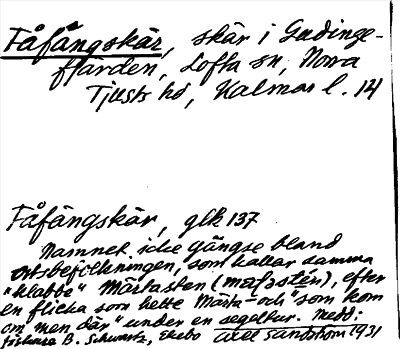 Fåfängskär, skär i Gudinge-
fjärden, Lofta sn, Norra
Tjusts hd, Kalmar l. 141
Fåfängskär, glk 137
Namnet icke gängse bland
ortsbefolkningen, som kallar samma
"klabbe" Märtasten (mæʃastén), efter
en flicka som hette Märta och "som kom
om men där" under en segeltur. Medd:
fiskare B. Schwartz, Ekebo Axel Sandström 1931